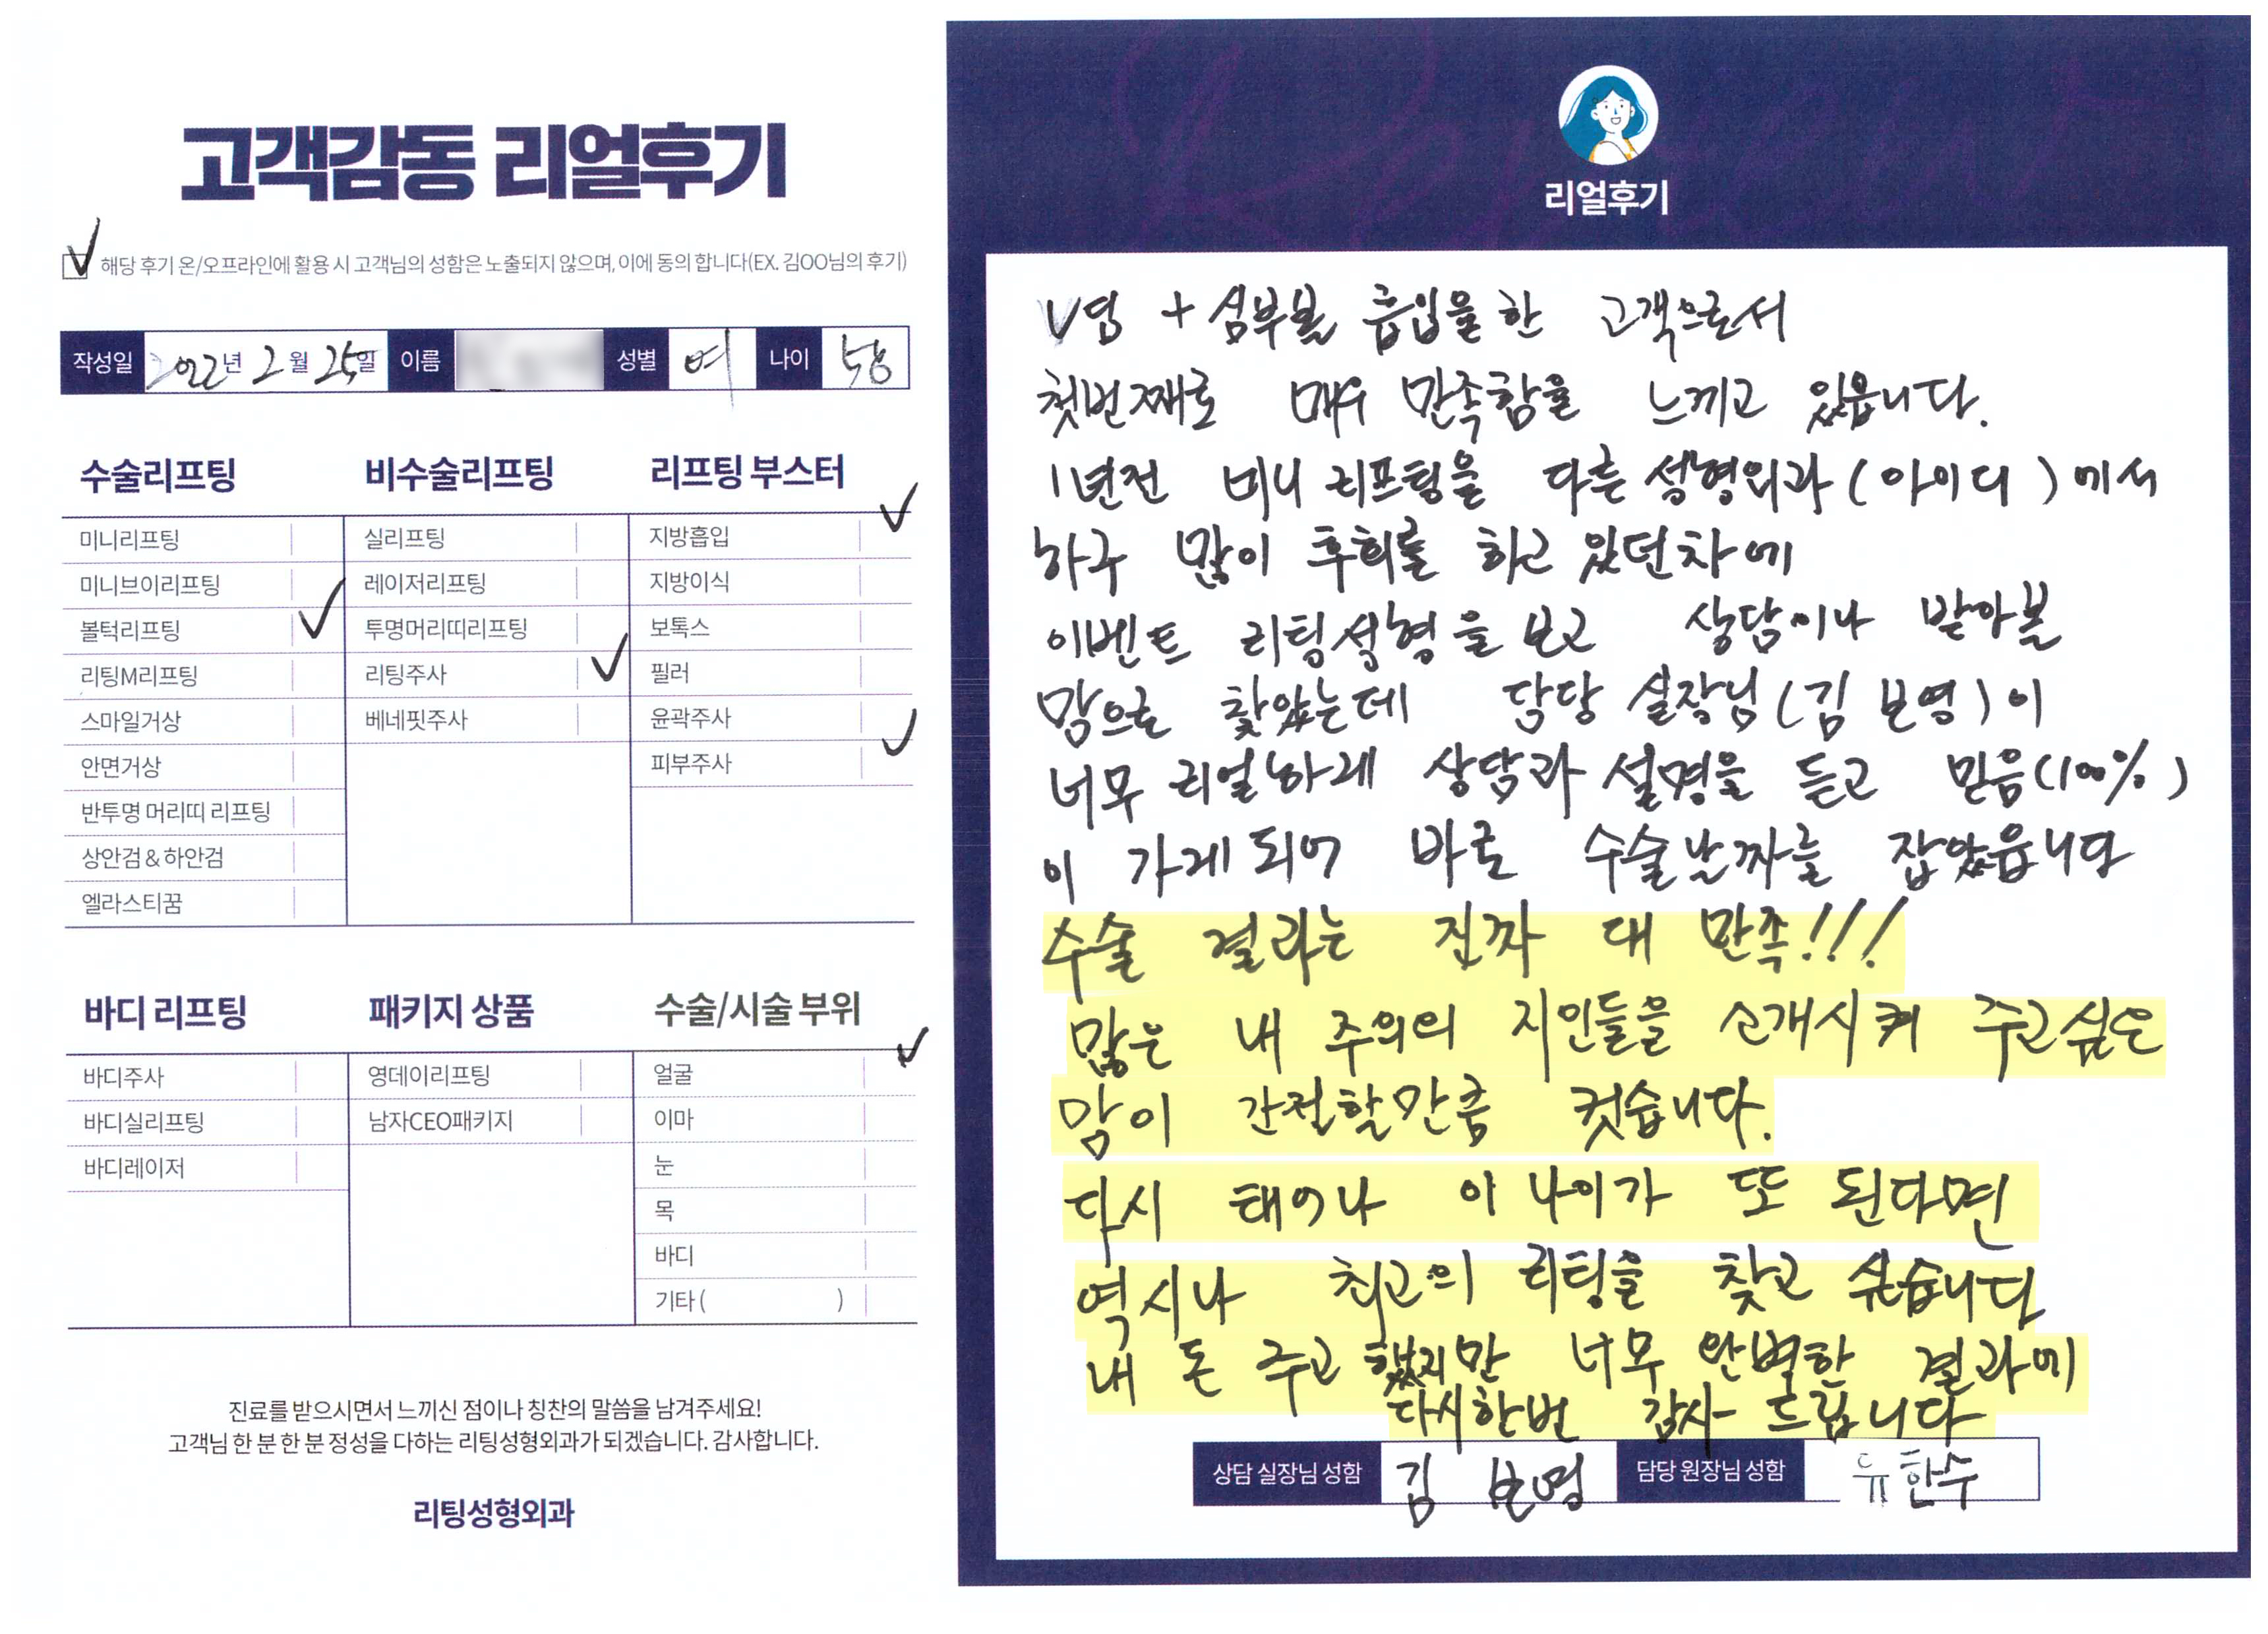 고객감동 리얼후기
해당 후기 온/오프라인에 활용 시 고객님의 성함은 노출되지 않으며, 이에 동의 합니다(EX. 김OO님의 후기)
작성일 2022년 2월 25일 이름 성별 여 나이 58
수술리프팅
미니리프팅
미니브이리프팅
볼턱리프팅
리팅M리프팅
스마일거상
안면거상
반투명 머리띠 리프팅
상안검 & 하안검
엘라스티꿈
비수술리프팅
실리프팅
레이저리프팅
투명머리띠리프팅
리팅주사
베네핏주사
리프팅 부스터
지방흡입
지방이식
보톡스
필러
윤곽주사
피부주사
바디 리프팅
바디주사
바디실리프팅
바디레이저
패키지 상품
영데이리프팅
남자CEO패키지
수술/시술 부위
얼굴
이마
눈
목
바디
기타 ( )
진료를 받으시면서 느끼신 점이나 칭찬의 말씀을 남겨주세요!
고객님 한 분 한 분 정성을 다하는 리팅성형외과가 되겠습니다. 감사합니다.
리팅성형외과
리얼후기
+ 심부볼 흡입을 한 고객으로서
첫번째로 매우 만족함을 느끼고 있읍니다.
1년전 미니 리프팅을 다른 성형외과 (아이디) 에서
하구 많이 후회를 하고 있던차에
이벤트 리팅성형을 보고 상담이나 받아볼
맘으로 찾았는데 담당 실장님 (김보영) 이
너무 리얼하게 상담과 설명을 듣고 믿음 (100%)
이 가게 되어 바로 수술날짜를 잡았읍니다
수술 결과는 진짜 대 만족!!!
많은 내 주위의 지인들을 소개시켜 주고싶은
맘이 간절할만큼 컷습니다.
다시 태어나 이 나이가 또 된다면
역시나 최고의 리팅을 찾고 싶습니다
내 돈 주고 했지만 너무 완벽한 결과에
다시한번 감사 드립니다
상담 실장님 성함 김보영 담당 원장님 성함 유한수